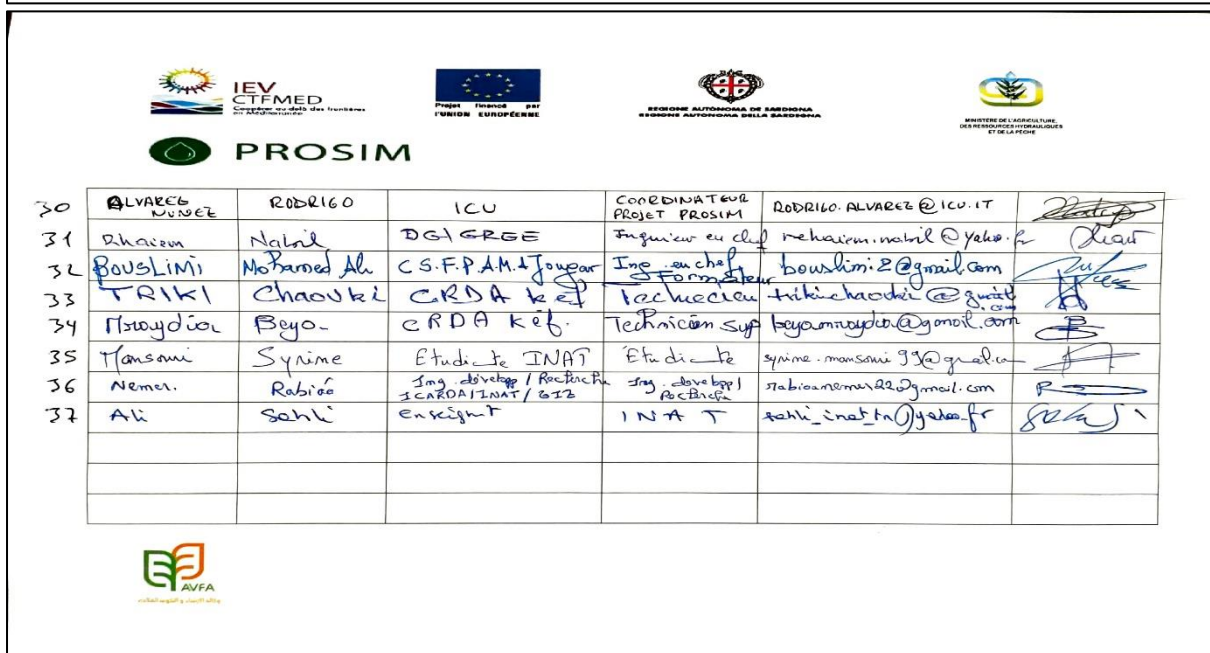 IEV
CTFMED
Coopérer au-delà des frontières
en Méditerranée
Projet financé par
l'UNION EUROPÉENNE
REGIONE AUTÒNOMA DE SARDIGNA
REGIONE AUTONOMA DELLA SARDEGNA
MINISTÈRE DE L'AGRICULTURE,
DES RESSOURCES HYDRAULIQUES
ET DE LA PÊCHE
PROSIM
30 ALVAREZ NUNEZ RODRIGO ICU COORDINATEUR PROJET PROSIM RODRIGO.ALVAREZ@ICU.IT
31 Rhaiem Nabil DG/GREE Ingenieur en chef rehaiem.nabil@yahoo.fr
32 BOUSLIMI Mohamed Ali C.S.F.P.A.M.A Jougar Ing en chef Formateur bouslimi.2@gmail.com
33 TRIKI Chaouki CRDA Kef Technicien trikichaouki@gmail.com
34 Beya CRDA Kef. Technicien Sup
35 Mansouri Syrine Etudiante INAT Etudiante syrine.mansouri99@gmail.com
36 Nemer. Rabiaa Ing. develop / Recherche ICARDA/INAT/GIZ Ing. develop / Recherche rabiaanemer22@gmail.com
37 Ali Sahli enseignt INAT sahli_inat_tn@yahoo.fr
AVFA